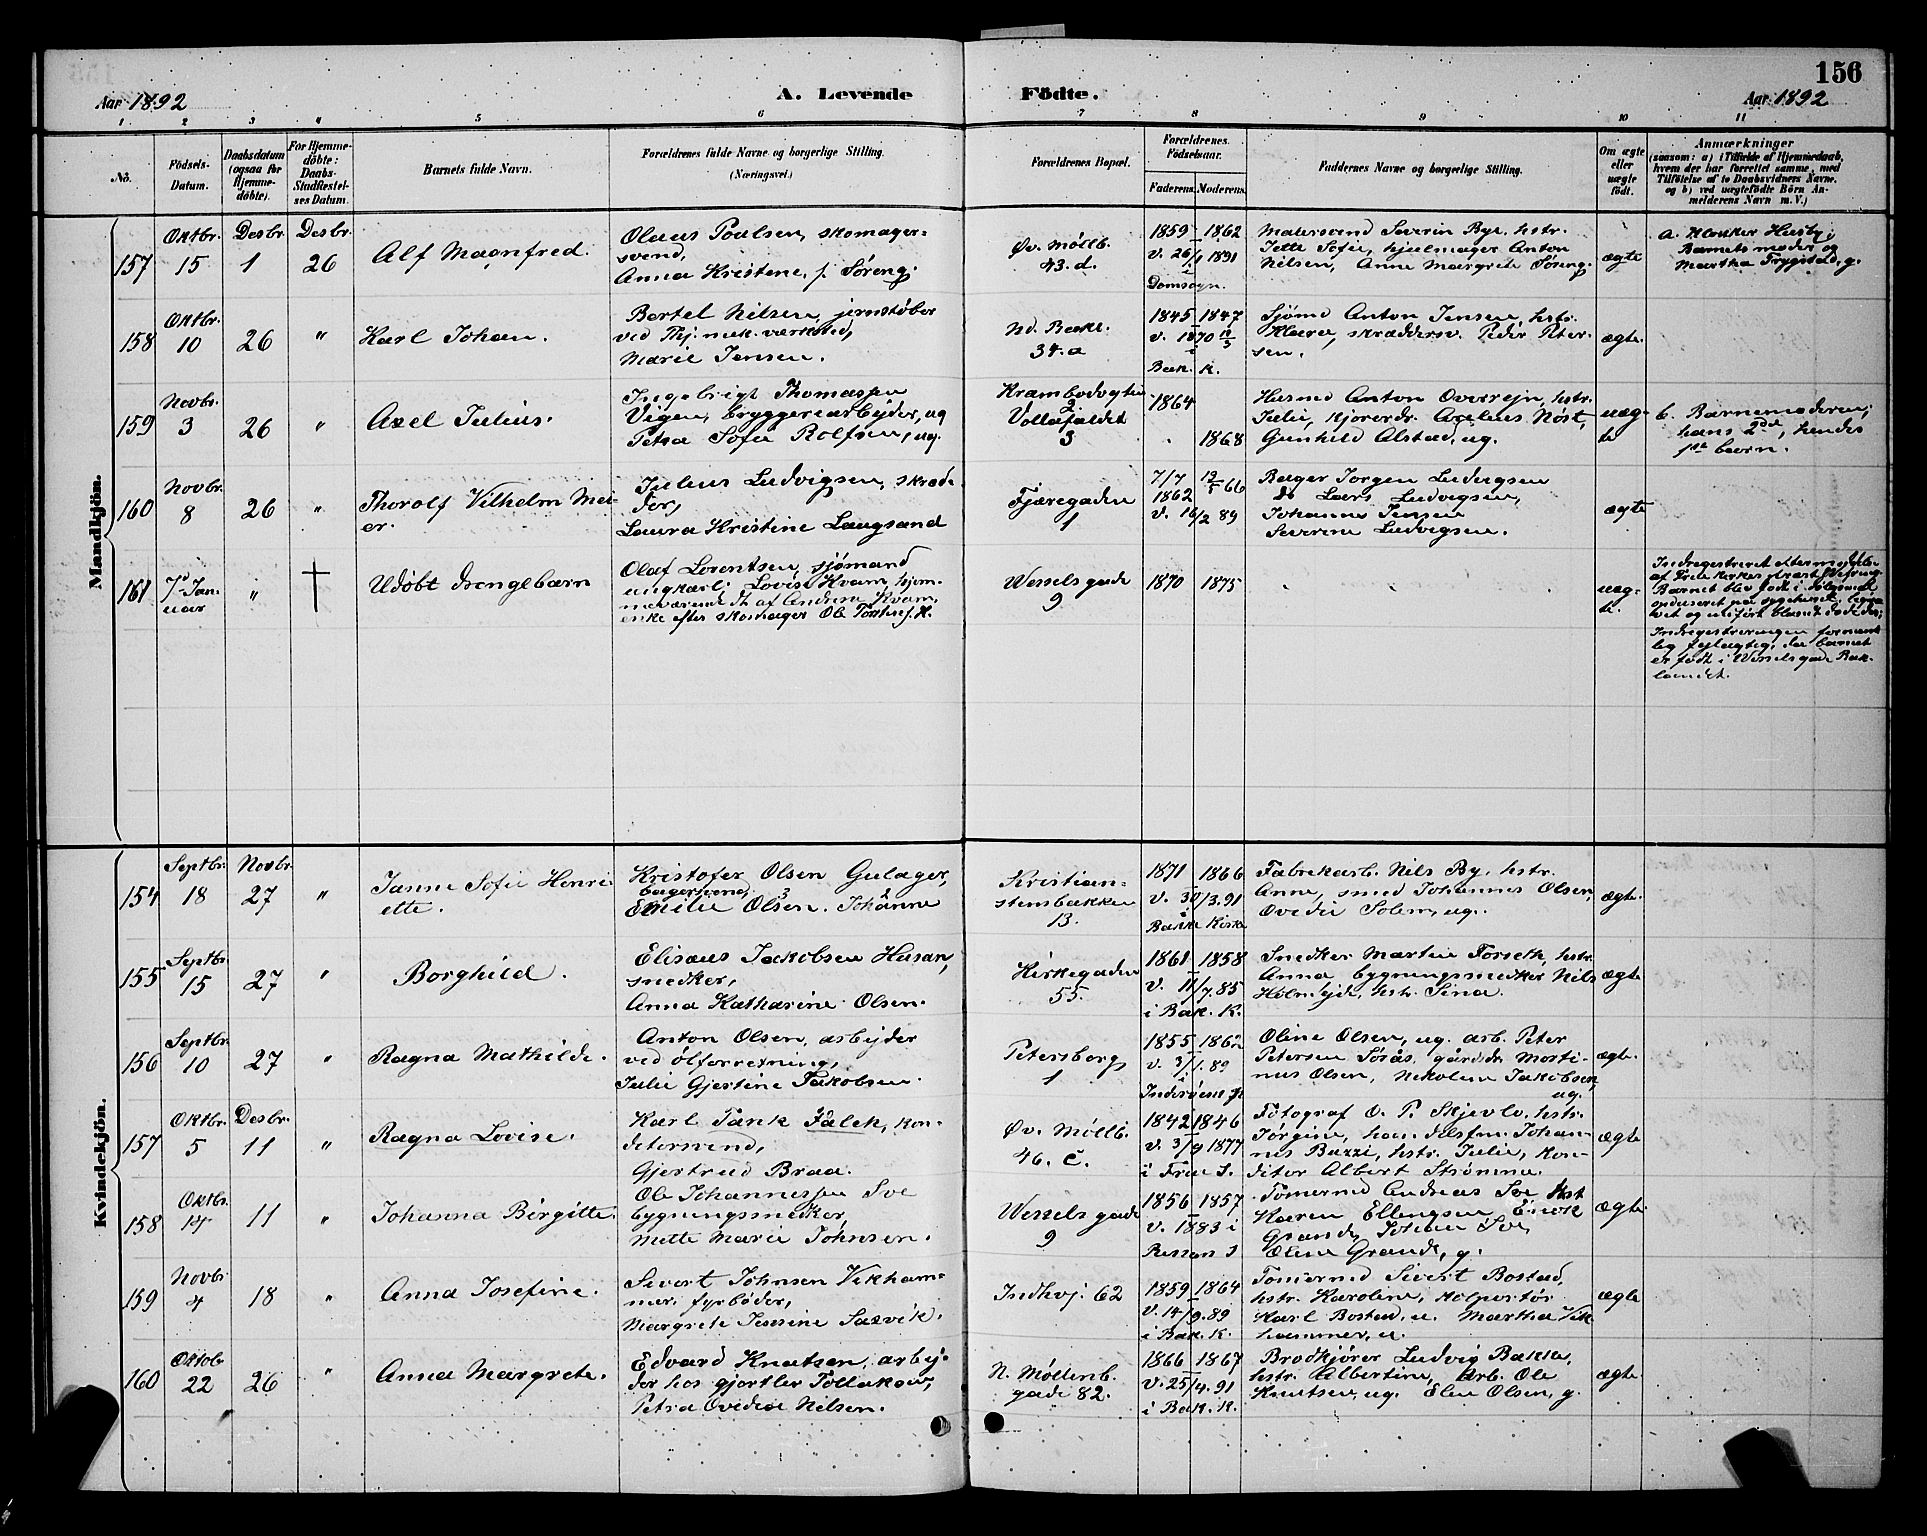 156
Aar 1892
A. Levende Födte.
Aar 1892
1 2 3 4 5 6 7 8 9 10 11
No.
Födsels-Datum.
Daabsdatum (ogsaa for Hjemme-döbte).
For Hjemme-döbte: Daabs-Stadfæstel-ses Datum.
Barnets fulde Navn.
Forældrenes fulde Navne og borgerlige Stilling.
(Næringsvei.)
Forældrenes Bopæl.
Forældrenes Födselsaar.
Faderens. Moderens.
Faddernes Navne og borgerlige Stilling.
Om ægte eller uægte födt.
Anmærkninger
(saasom: a) i Tilfælde af Hjemmedaab, hvem der har forrettet samme, med Tilföielse af to Daabsvidners Navne, og b) ved uægtefödte Börn An-melderens Navn m. V.)
Mandkjön.
157
Oktbr. 15
Desbr. 1
Desbr. 26
Alf Magnfred.
Olaus Poulsen, skomager-
svend,
Anna Kristine, f. Søreng.
Øv. Møllb.
43. d.
1859 1862
v. 26/1 1891
i
Domsogn.
Malersvend Severin Bye, hstr.
Jette Sofie, hjulmager Anton
Nilsen, Anne Margrete Søreng.
ægte
a. Klokker Husby;
Barnets moder og
Martha Trygstad, g.
158
Oktbr. 10
26
"
Karl Johan.
Bertel Nilsen, jernstøber
ved Thj. mek. værksted,
Marie Jensen.
Nd. Bakl.
34. a
1845 1847
v. 1870
i
Bak. K.
Sjømd Anton Jensen, hstr.
Klara, skræddersv. Peder Peter-
sen.
ægte.
159
Novbr. 3
26
"
Axel Julius.
Ingebrigt Thomassen
Vigen, bryggeriarbejder, ug
Petra Sofie Rolfsen, ug.
Krambodvgten
2
Vollafaldet
3
1864
1868
Husmd Anton Overrejn, hstr.
Julie, Axelius Nøst,
Gunhild Alstad, ug.
uæg-
te
b. Barnemoderen;
hans 2det, hendes
1ste barn.
160
Novbr. 8
26
"
Thorolf Vilhelm Mei-
er.
Julius Ludvigsen, skræd-
der,
Laura Kristine Langsand
Fjæregaden
1
7/7 1862 66
v. 16/2 89
Bager Jørgen Ludvigsen
do Lars Ludvigsen,
Johanne Jensen
Severine Ludvigsen.
ægte
161
7de Jan-
uar
"
†
Udøbt drengebarn
Olaf Lorentsen, sjømand
ungkarl, Lovise Kvam, hjem-
meværende dt. af Andrea Kvam,
enke efter skomager Ole K.
Wessels gade
9
1870 1875
uæg-
te.
Indregistreret efter meddelelse
af
Barnet blev født i dølgsmål
Indregistreringen
lig fejlagtig, da barnet
er født i Wesselsgade Bak-
landet.
Kvindekjön.
154
Septbr. 18
Novbr. 27
"
Janne Sofie Henri-
ette.
Kristofer Olsen Gulager,
bagersvend,
Emilie Olsen. Johanne
Kristian-
stensbakken
13.
1871 1866
v. 30/3. 91
i
Bakke Kirke
Fabrikarb. Nils By, hstr.
Anne, smed Johannes Olsen,
Ovedie Solem, ug.
ægte.
155
Septbr. 15
27
"
Borghild.
Elisæus Jakobsen Husan,
snedker,
Anna Katharine Olsen.
Kirkegaden
55.
1861 1858
v. 11/7. 85
i Bak. K.
Snedker Martin Forseth, hstr.
Anna, bygningssnedker Nils
Holmejde, hstr. Sina.
ægte
156
Septbr. 10
27
"
Ragna Mathilde.
Anton Olsen, arbejder
ved ølforretning,
Julie Gjertine Jakobsen.
Petersborg
1
1855 1862
v. 3/1. 89
i
Inderøens K
Oline Olsen, ug. arb. Peter
Petersen Sørås, gårdbr. Morti-
nus Olsen, Nikoline Jakobsen,
ug.
ægte.
157
Oktbr. 5
Desbr. 11
"
Ragna Lovise.
Karl Tank Falck, kon-
ditersvend,
Gjertrud Braa.
Øv. Møllb.
46. c.
1842 1846
v. 3/9 1877
i Frue S.
Fotograf O. P. Skjevlo, hstr.
Jørgine, handelsfm. Johan-
nes Buzzi, hstr. Julie, kon-
ditor Albert Strømme.
ægte
158
Oktbr. 14
11
"
Johanna Birgitte.
Ole Johannessen Soe
bygningssnedker,
Mette Marie Johnsen.
Wessels gade
9
1856 1857
v. 1883 i
Rissen S
Tømermd Andreas Soe hst
Karen Ellingsen,
Grande, Johan Soe,
Oline Grande, g.
ægte.
159
Novbr. 4
18
"
Anna Josefine.
Sivert Johnsen Vikham-
mer, fyrbøder,
Margrete Jensine Saxvik.
Indhvj. 62
1859 1864
v. 14/9. 89
i Bak. K.
Tømermd Sivert Bostad,
hstr. Karoline, kolportør
Karl Bostad, u. Martha Vik
hammer, u.
ægte
160
Oktob. 22
26
"
Anna Margrete.
Edvard Knutsen, arbej-
der hos gjørtler Tollaksen,
Petra Ovedie Nilsen.
N. Møllenb.
gade 82.
1866 1867
v. 25/4. 91
i Bak. K.
Brødkjører Ludvig Bakke,
hstr. Albertine, arb. Ole
Knutsen, ug. Elen Olsen, g.
ægte